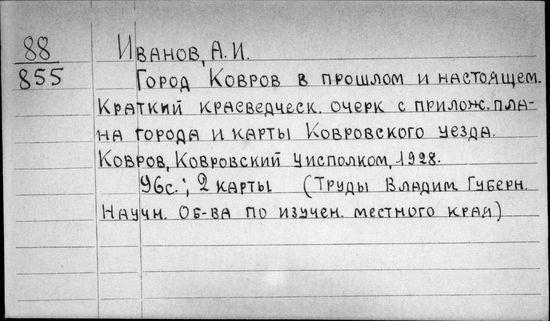 88
855
Иванов, А.И.
Город Ковров в прошлом и настоящем.
Краткий краеведческ. очерк с прилож. пла-
на города и карты Ковровского уезда.
Ковров, Ковровский Уисполком, 1928.
96с.; 2 карты (Труды Владим. Губерн.
Научн. Об-ва по изучен. местного края)